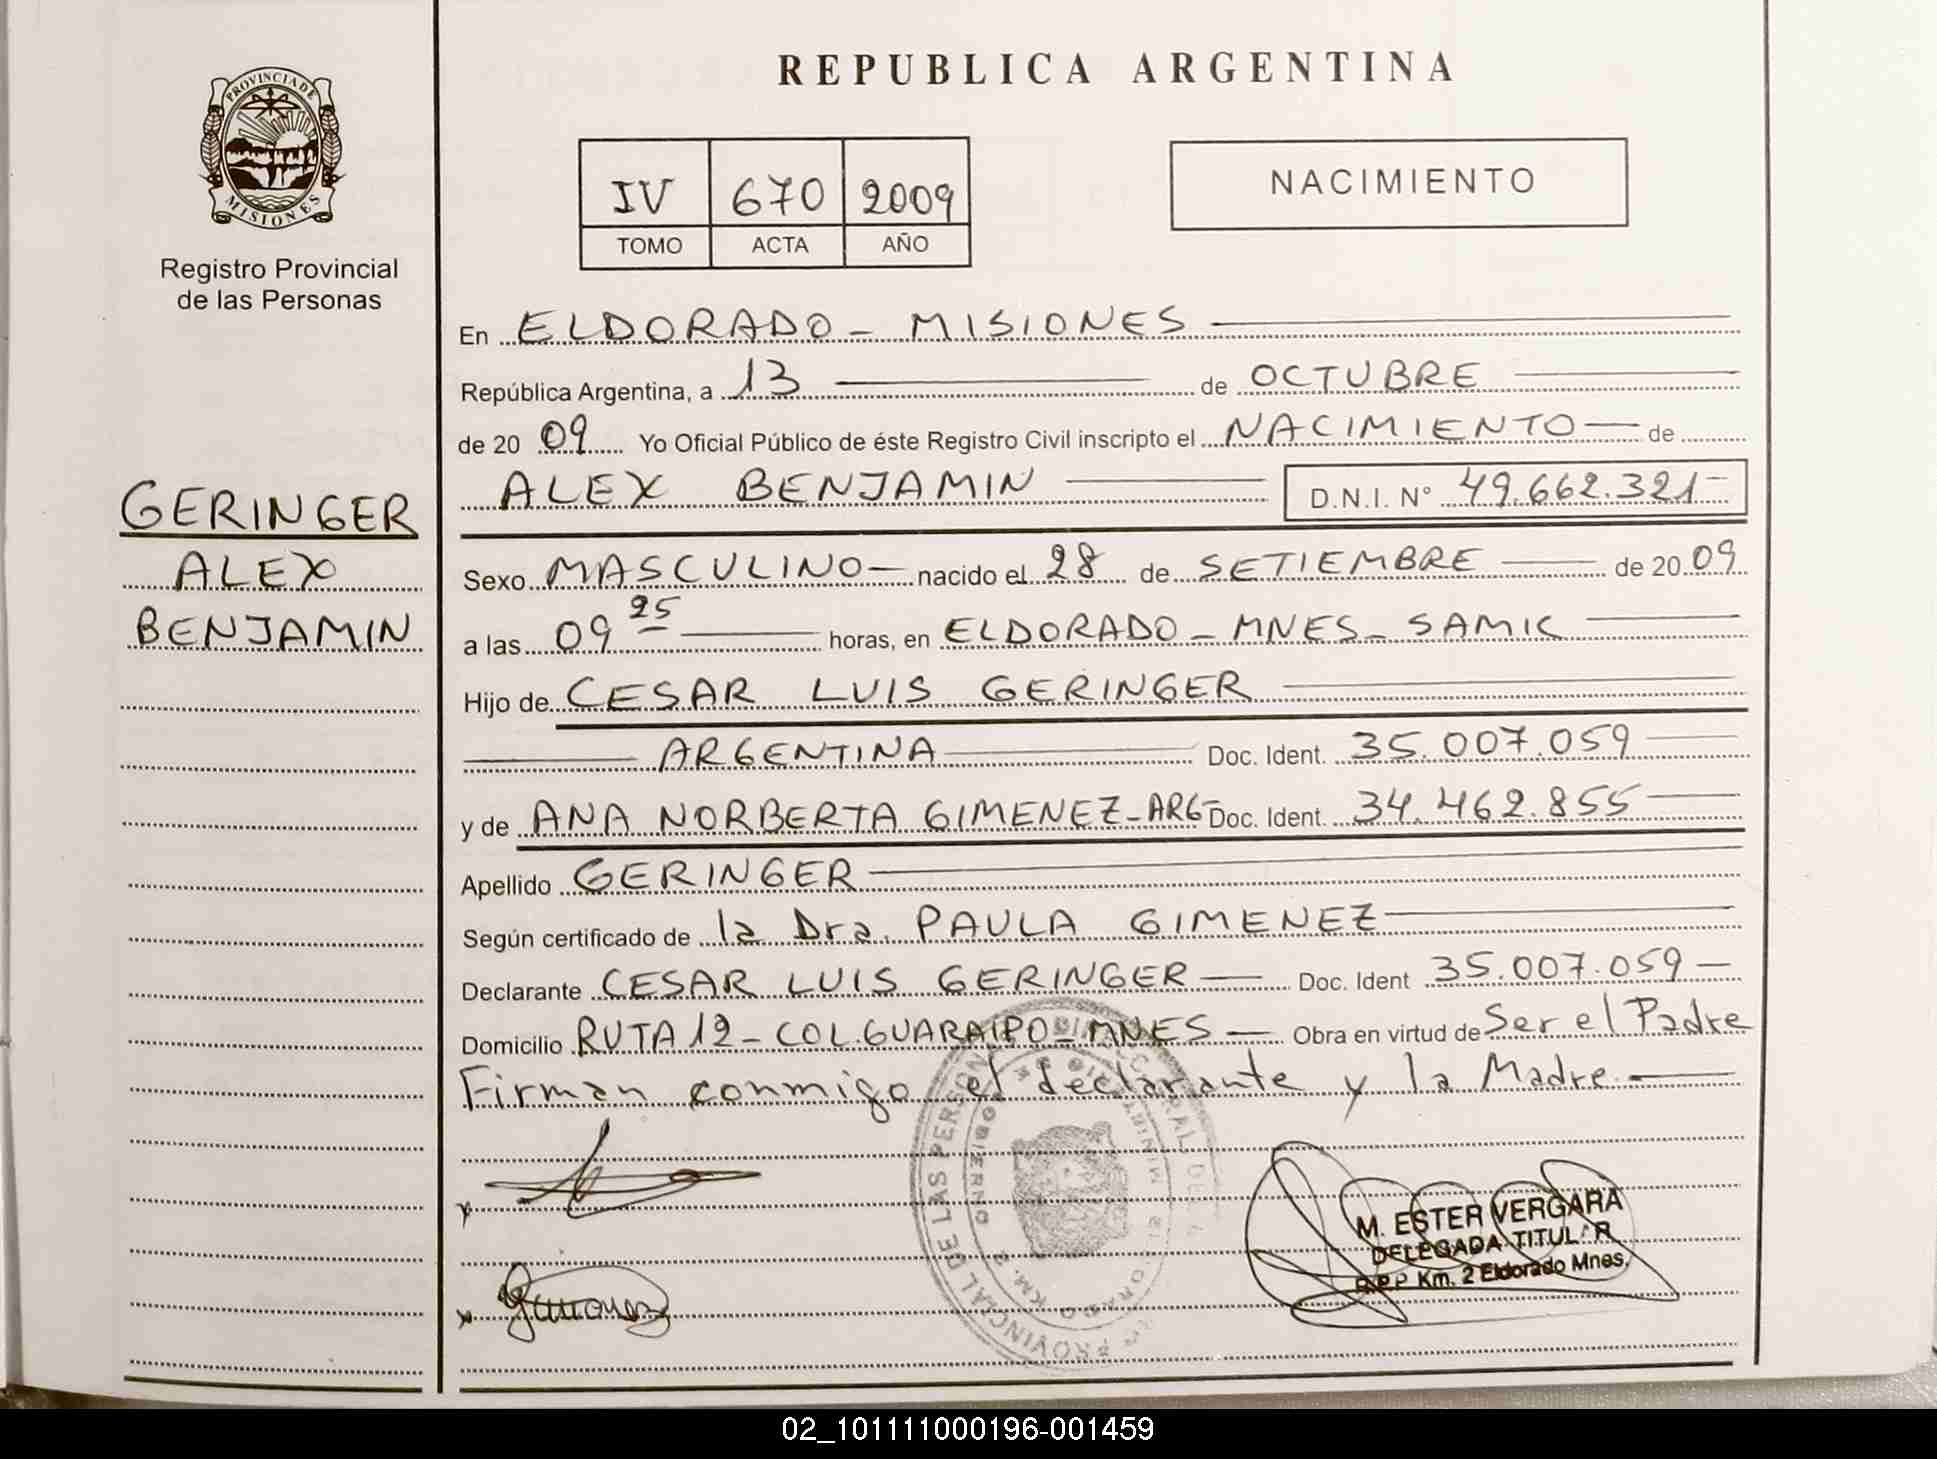 REPUBLICA ARGENTINA
PROVINCIA DE
MISIONES
Registro Provincial
de las Personas
IV 670 2009
TOMO ACTA AÑO
NACIMIENTO
GERINGER
ALEX
BENJAMIN
En ELDORADO - MISIONES
República Argentina, a 13 de OCTUBRE
de 20 09 Yo Oficial Público de éste Registro Civil inscripto el NACIMIENTO de
ALEX BENJAMIN D.N.I. N° 49.662.321
Sexo MASCULINO nacido el 28 de SETIEMBRE de 20 09
a las 09 25 horas, en ELDORADO - MNES - SAMIC
Hijo de CESAR LUIS GERINGER
ARGENTINA Doc. Ident. 35.007.059
y de ANA NORBERTA GIMENEZ - ARG Doc. Ident. 34.462.855
Apellido GERINGER
Según certificado de la Dra. PAULA GIMENEZ
Declarante CESAR LUIS GERINGER Doc. Ident 35.007.059
Domicilio RUTA 12 - COL. GUARAIPO - MNES Obra en virtud de Ser el Padre
Firman conmigo el declarante y la Madre.
M. ESTER VERGARA
DELEGADA TITULAR
R.P.P Km. 2 Eldorado Mnes.
02_101111000196-001459